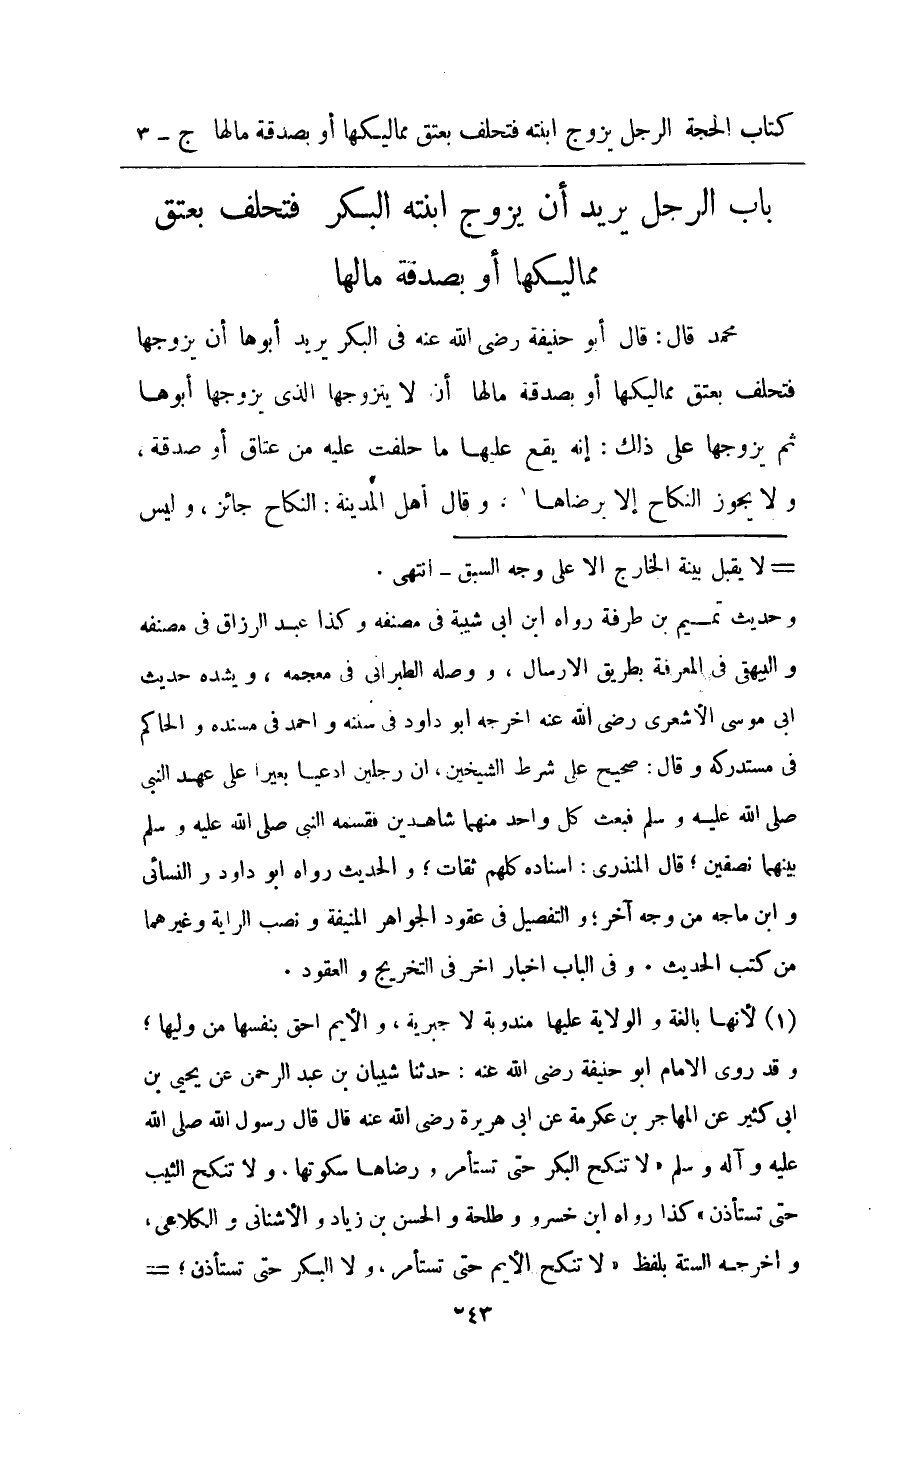 كتاب الحجة الرجل يزوج ابنته فتحلف بعتق مماليكها أو بصدقة مالها ج - ٣
باب الرجل يريد أن يزوج ابنته البكر فتحلف بعتق
مماليكها أو بصدقة مالها
محمد قال : قال أبو حنيفة رضى الله عنه فى البكر يريد أبوها أن يزوجها
فتحلف بعتق مماليكها أو بصدقة مالها أن لا يتزوجها الذى يزوجها أبوهـا
ثم يزوجها على ذلك : إنه يقع عليهـا ما حلفت عليه من عتاق أو صدقة ،
و لا يجوز النكاح إلا برضاهـا ١ ، و قال أهل المدينة : النكاح جائز ، و ليس
= لا يقبل بينة الخارج الا على وجه السبق - انتهى .
و حديث تمـيم بن طرفة رواه ابن ابى شيبة فى مصنفه و كذا عبـد الرزاق فى مصنفه
و البيهقى فى المعرفة بطريق الارسال ، و وصله الطبرانى فى معجمه ، و يشده حديث
ابى موسى الأشعرى رضى الله عنه اخرجه ابو داود فى سننه و احمد فى مسنده و الحاكم
فى مستدركه و قال : صحيح على شرط الشيخين ، ان رجلين ادعيـا بعيرا على عهـد النبى
صلى الله عليـه و سلم فبعث كل واحد منهما شاهـدين فقسمه النبى صلى الله عليه و سلم
بينهما نصفين ؛ قال المنذرى : اسناده كلهم ثقات ؛ و الحديث رواه ابو داود و النسائى
و ابن ماجه من وجه آخر ؛ و التفصيل فى عقود الجواهر المنيفة و نصب الراية و غيرهما
من كتب الحديث . و فى الباب اخبار اخر فى التخريج و العقود .
(١) لأنهـا بالغة و الولاية عليها مندوبة لا جبرية ، و الأيم احق بنفسها من وليها ؛
و قد روى الامام ابو حنيفة رضى الله عنه : حدثنا شيبان بن عبد الرحمن عن يحيى بن
ابى كثير عن المهاجر بن عكرمة عن ابى هريرة رضى الله عنه قال قال رسول الله صلى الله
عليه و آله و سلم « لا تنكح البكر حتى تستأمر و رضاهـا سكوتها ، و لا تنكح الثيب
حتى تستأذن » كذا رواه ابن خسرو و طلحة و الحسن بن زياد و الأشنانى و الكلاعى ،
و اخرجـه الستة بلفظ « لا تنكح الأيم حتى تستأمر ، و لا البكر حتى تستأذن ؛ =
٢٤٣